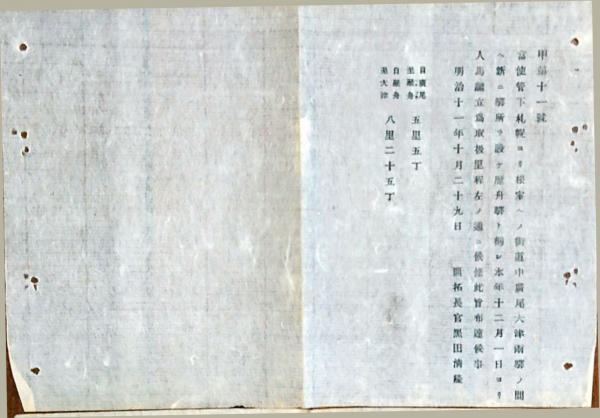 甲第十一號
當使管下札幌ヨリ根室ヘノ街道中廣尾大津兩驛ノ間
ヘ新ニ驛所ヲ設ケ歴舟驛ト稱シ本年十二月一日ヨリ
人馬繼立爲取扱里程左ノ通ニ候條此旨布達候事
明治十一年十月二十九日 開拓長官黑田清隆
自廣尾至歴舟 五里五丁
自歴舟至大津 八里二十五丁